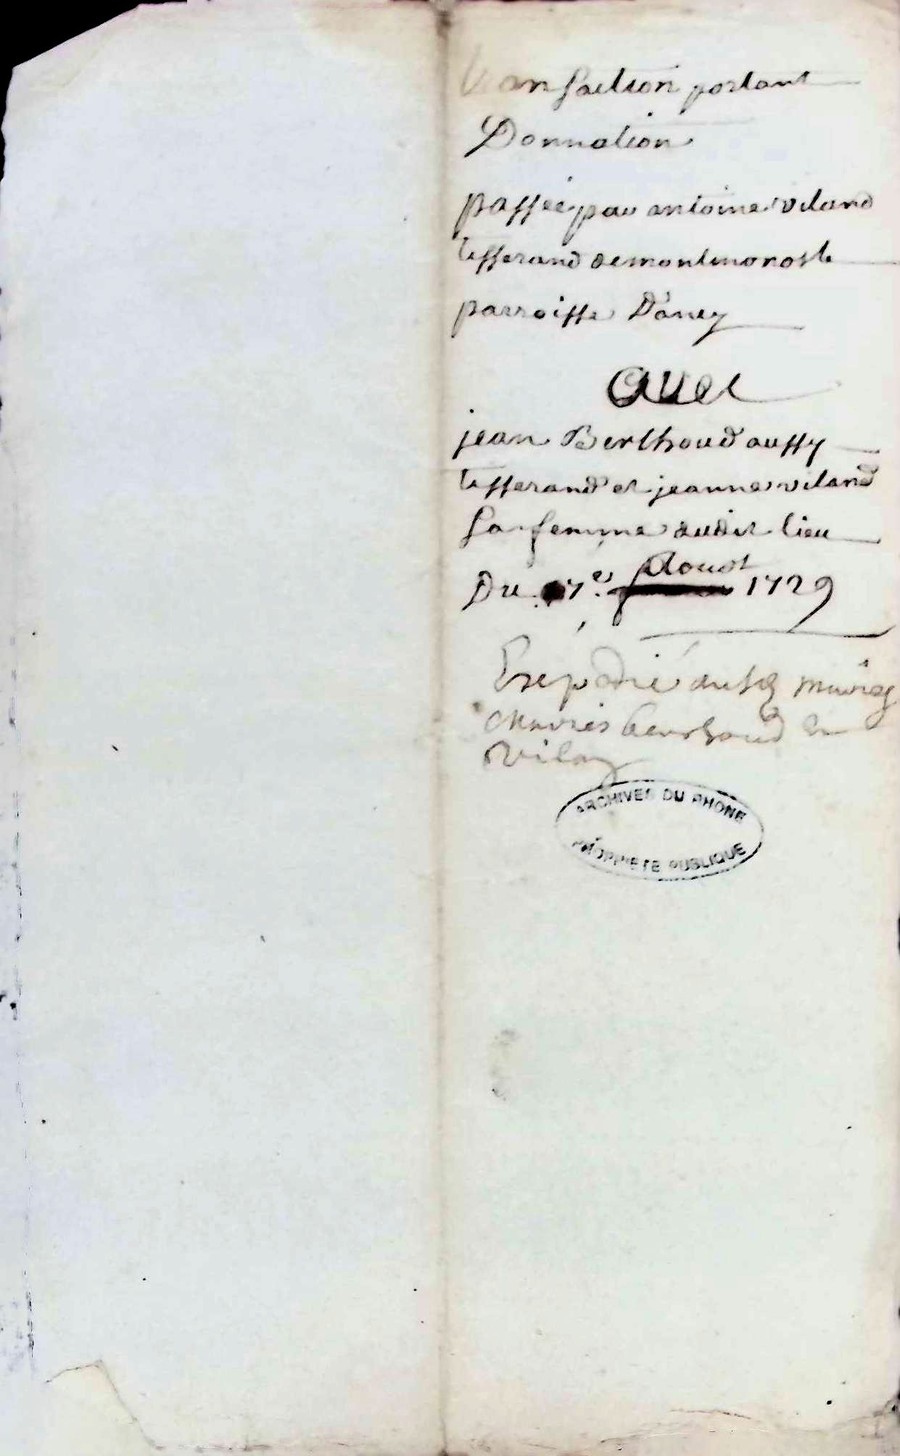 Transaction portant
Donnation
passée par antoine viland
tesserand de montmonost
parroisse D'aney
Avec
jean Berthoud aussy
tesserand et jeanne viland
sa femme dudit lieu
Du 7e. Aoust 1729
Expedié
berthoud
vilan
ARCHIVES DU RHONE
PROPRIETE PUBLIQUE